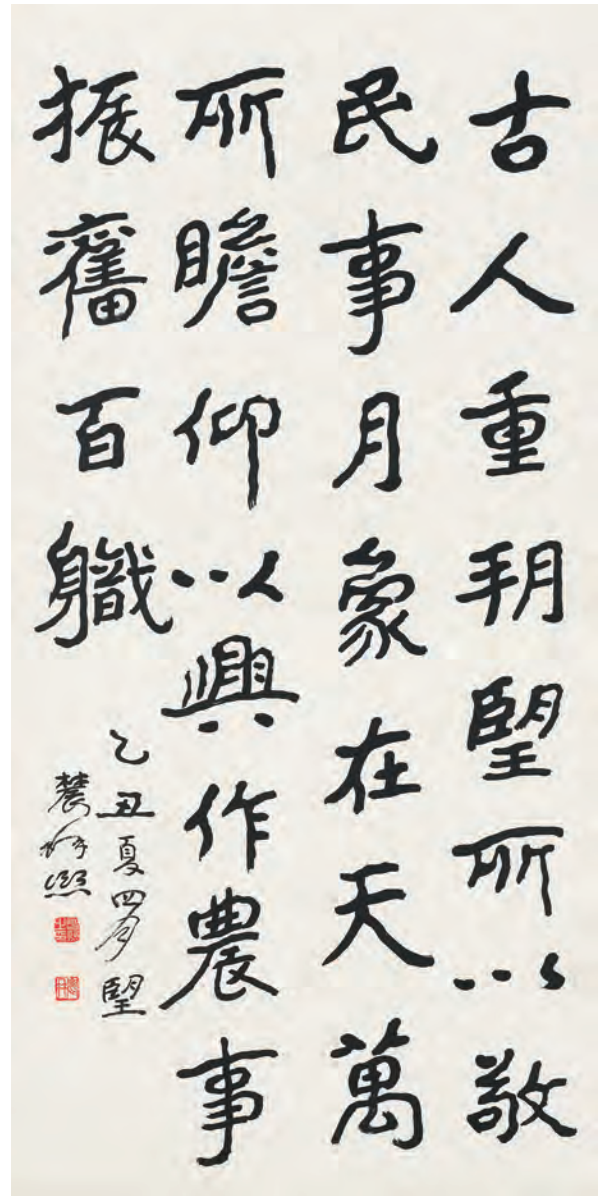 古人重朔朢所以敬
民事月象在天萬
所瞻仰以興作農事
振奮百軄
乙丑夏四月朢
農髯熙